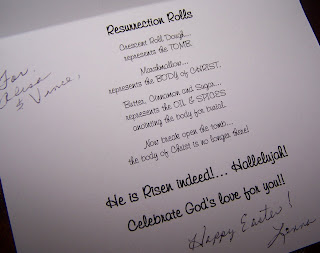 Resurrection Rolls
Crescent Roll Dough...
represents the TOMB.
Marshmallow...
represents the BODY of CHRIST.
Butter, Cinnamon and Sugar...
represents the OIL & SPICES
anointing the body for burial.
Now break open the tomb...
the body of Christ is no longer there!
He is Risen indeed!... Hallelujah!
Celebrate God's love for you!!
For
& Vince,
Happy Easter!